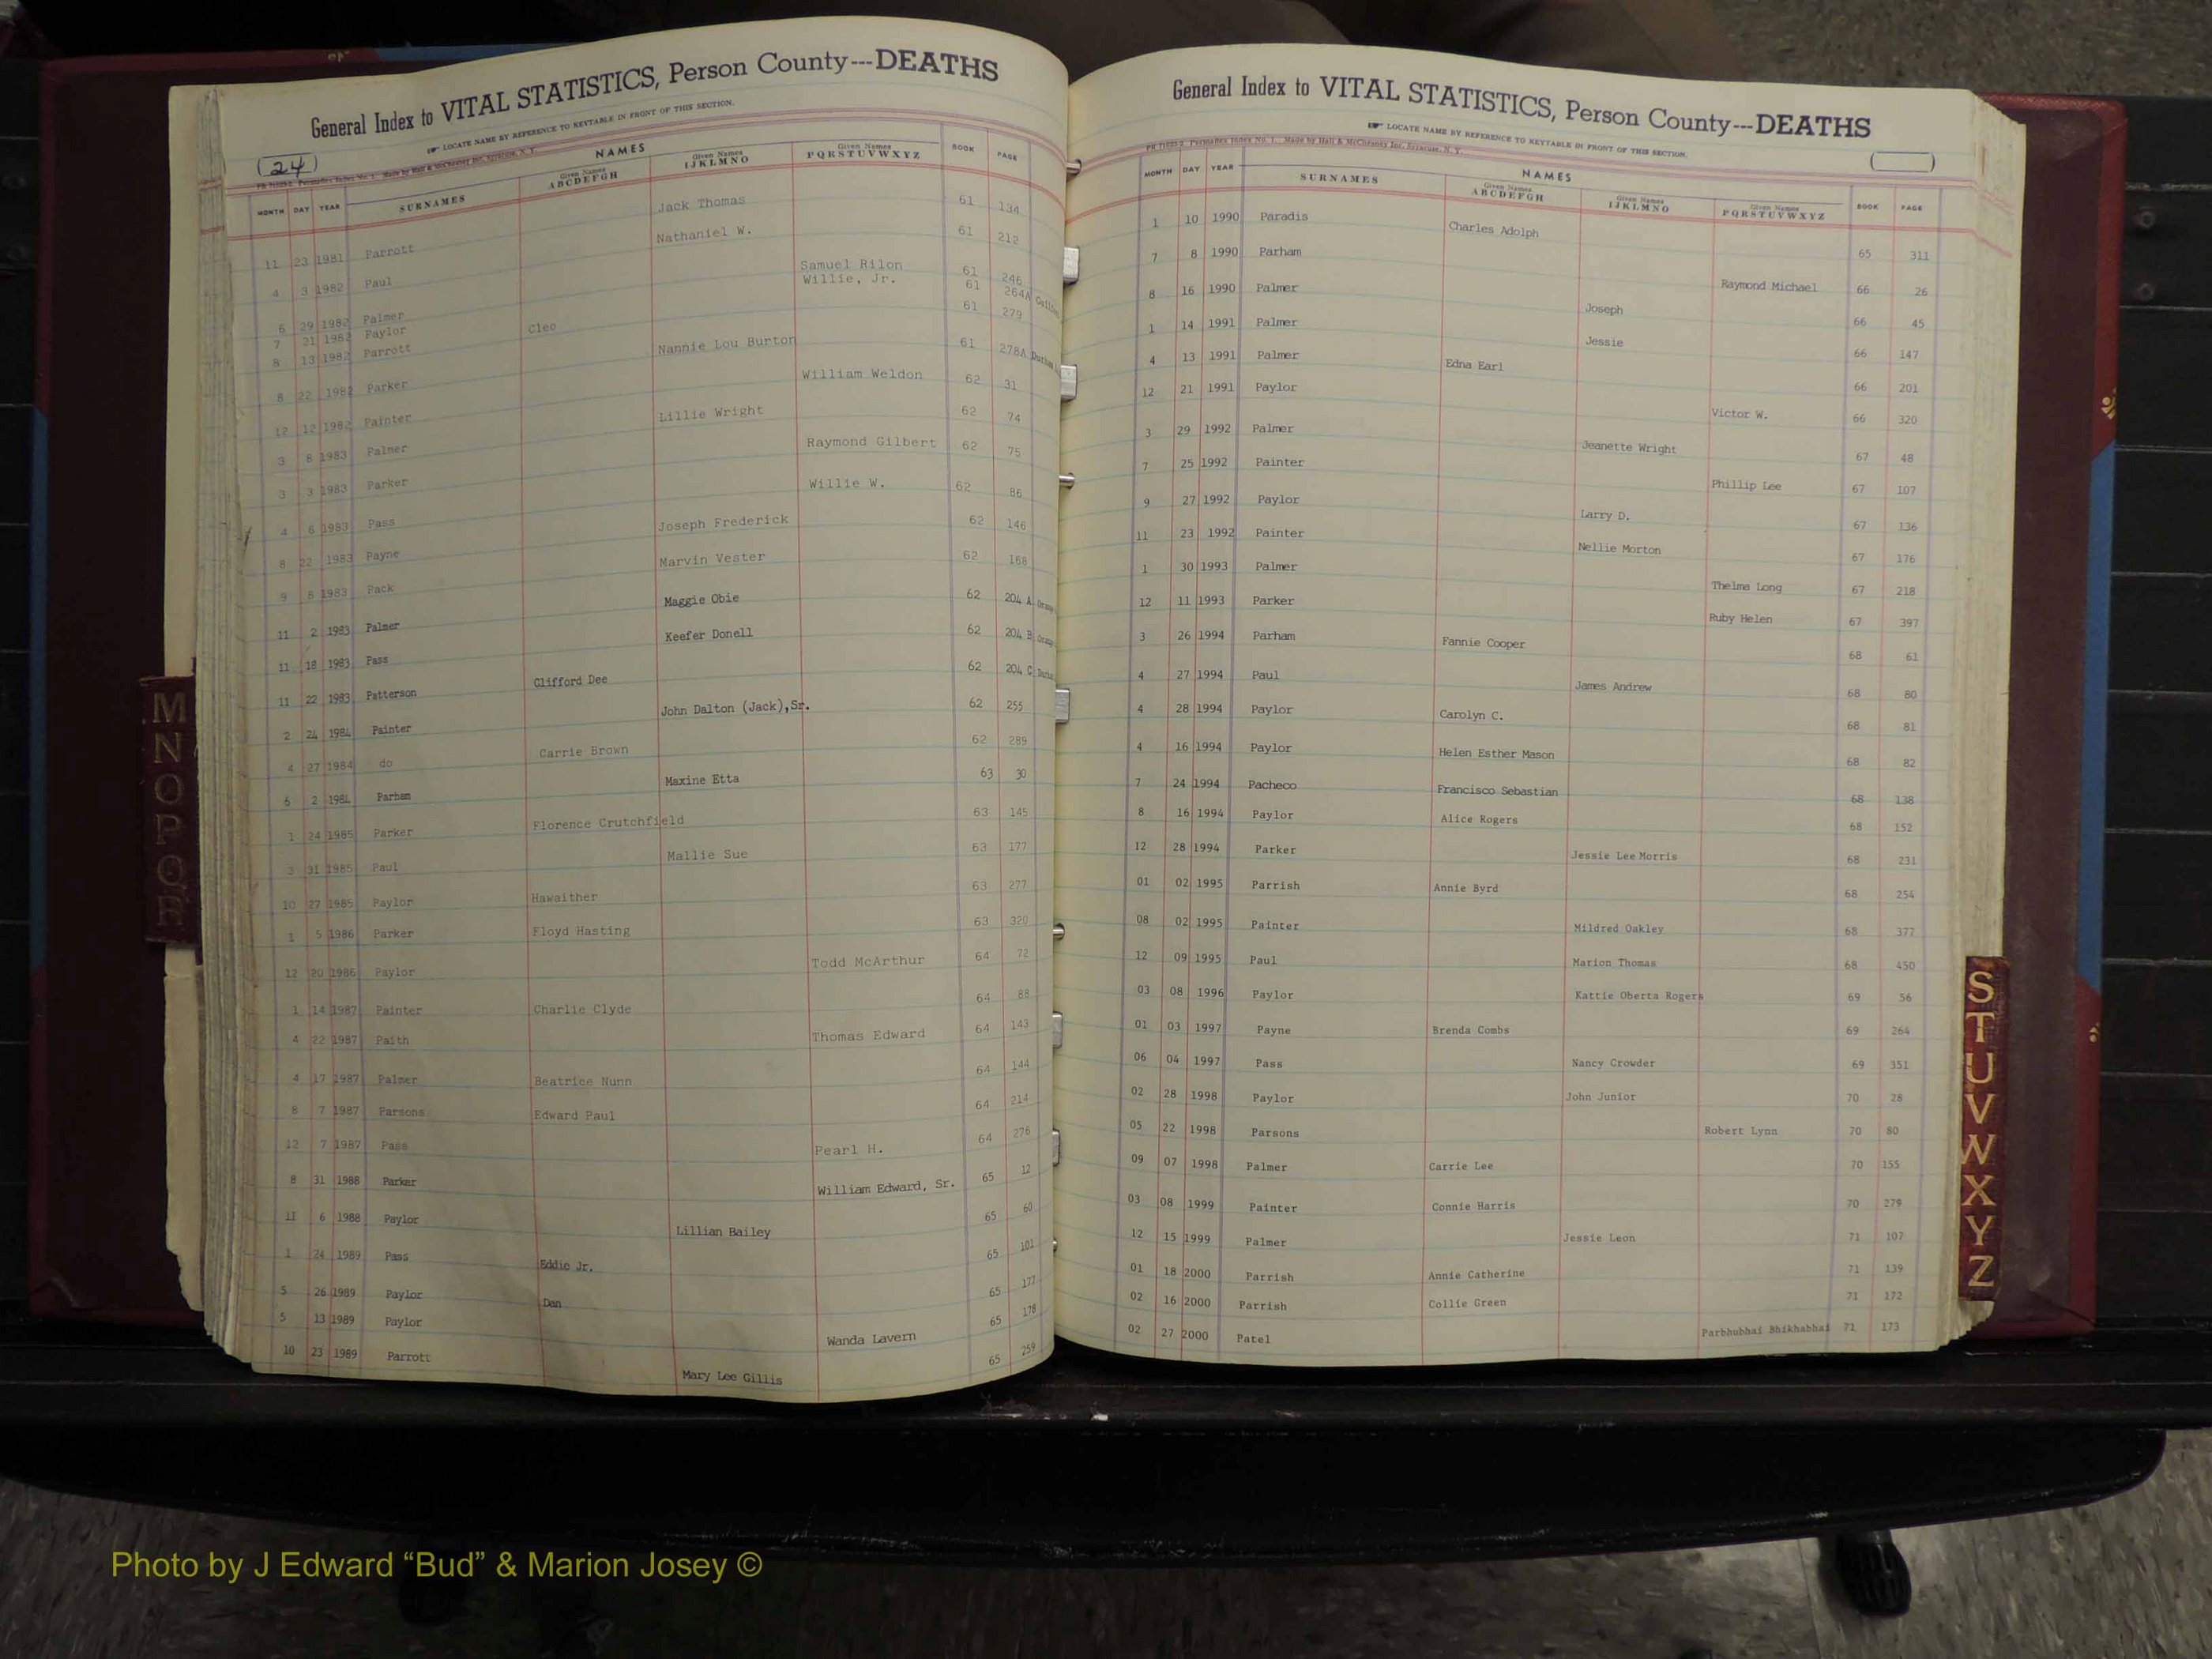 General Index to VITAL STATISTICS, Person County---DEATHS
☞ LOCATE NAME BY REFERENCE TO KEYTABLE IN FRONT OF THIS SECTION.
(24)
MONTH DAY YEAR SURNAMES NAMES Given Names ABCDEFGH Given Names IJKLMNO Given Names PQRSTUVWXYZ BOOK PAGE
11 23 1981 Parrott Jack Thomas 61 134
4 3 1982 Paul Nathaniel W. 61 212
6 29 1982 Palmer Samuel Rilon 61 246
7 21 1982 Paylor Willie, Jr. 61 264A
8 13 1982 Parrott Cleo 61 279
8 22 1982 Parker Nannie Lou Burton 61 278A
12 12 1982 Painter William Weldon 62 31
3 8 1983 Palmer Lillie Wright 62 74
3 3 1983 Parker Raymond Gilbert 62 75
4 6 1983 Pass Willie W. 62 86
8 22 1983 Payne Joseph Frederick 62 146
9 8 1983 Pack Marvin Vester 62 168
11 2 1983 Palmer Maggie Obie 62 204 A
11 18 1983 Pass Keefer Donell 62 204 B
11 22 1983 Patterson Clifford Dee 62 204 C
2 24 1984 Painter John Dalton (Jack),Sr. 62 255
4 27 1984 do Carrie Brown 62 289
6 2 1984 Parham Maxine Etta 63 30
1 24 1985 Parker Florence Crutchfield 63 145
3 31 1985 Paul Mallie Sue 63 177
10 27 1985 Paylor Hawaither 63 277
1 5 1986 Parker Floyd Hasting 63 320
12 20 1986 Paylor Todd McArthur 64 72
1 14 1987 Painter Charlie Clyde 64 88
4 22 1987 Paith Thomas Edward 64 143
4 17 1987 Palmer Beatrice Nunn 64 144
8 7 1987 Parsons Edward Paul 64 214
12 7 1987 Pass Pearl H. 64 276
8 31 1988 Parker William Edward, Sr. 65 12
11 6 1988 Paylor Lillian Bailey 65 60
1 24 1989 Pass Eddie Jr. 65 101
5 26 1989 Paylor Dan 65 177
5 13 1989 Paylor Wanda Lavern 65 178
10 23 1989 Parrott Mary Lee Gillis 65 259
General Index to VITAL STATISTICS, Person County---DEATHS
☞ LOCATE NAME BY REFERENCE TO KEYTABLE IN FRONT OF THIS SECTION.
MONTH DAY YEAR SURNAMES NAMES Given Names ABCDEFGH Given Names IJKLMNO Given Names PQRSTUVWXYZ BOOK PAGE
1 10 1990 Paradis Charles Adolph 65 311
7 8 1990 Parham Raymond Michael 66 26
8 16 1990 Palmer Joseph 66 45
1 14 1991 Palmer Jessie 66 147
4 13 1991 Palmer Edna Earl 66 201
12 21 1991 Paylor Victor W. 66 320
3 29 1992 Palmer Jeanette Wright 67 48
7 25 1992 Painter Phillip Lee 67 107
9 27 1992 Paylor Larry D. 67 136
11 23 1992 Painter Nellie Morton 67 176
1 30 1993 Palmer Thelma Long 67 218
12 11 1993 Parker Ruby Helen 67 397
3 26 1994 Parham Fannie Cooper 68 61
4 27 1994 Paul James Andrew 68 80
4 28 1994 Paylor Carolyn C. 68 81
4 16 1994 Paylor Helen Esther Mason 68 82
7 24 1994 Pacheco Francisco Sebastian 68 138
8 16 1994 Paylor Alice Rogers 68 152
12 28 1994 Parker Jessie Lee Morris 68 231
01 02 1995 Parrish Annie Byrd 68 254
08 02 1995 Painter Mildred Oakley 68 377
12 09 1995 Paul Marion Thomas 68 450
03 08 1996 Paylor Kattie Oberta Rogers 69 56
01 03 1997 Payne Brenda Combs 69 264
06 04 1997 Pass Nancy Crowder 69 351
02 28 1998 Paylor John Junior 70 28
05 22 1998 Parsons Robert Lynn 70 80
09 07 1998 Palmer Carrie Lee 70 155
03 08 1999 Painter Connie Harris 70 279
12 15 1999 Palmer Jessie Leon 71 107
01 18 2000 Parrish Annie Catherine 71 139
02 16 2000 Parrish Collie Green 71 172
02 27 2000 Patel Parbhubhai Bhikhabhai 71 173
M
N
O
P
Q
R
S
T
U
V
W
X
Y
Z
Photo by J Edward “Bud” & Marion Josey ©